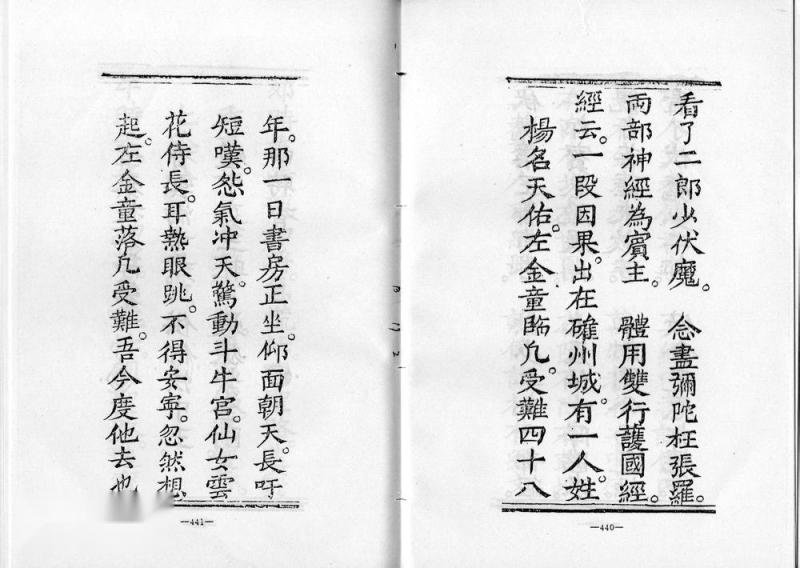 看了二郎少伏魔。 念盡彌陀枉張羅。
両部神經為賓主。 體用雙行護國經。
經云。一段因果。出在確州城。有一人。姓
楊名天佑。左金童臨凡。受難四十八
—440—
年。那一日書房正坐。仰面朝天。長吁
短嘆。怨氣冲天。驚動斗牛宮。仙女雲
花侍長。耳熱眼跳。不得安寧。忽然想
起。左金童落凡受難。吾今度他去也
—441—